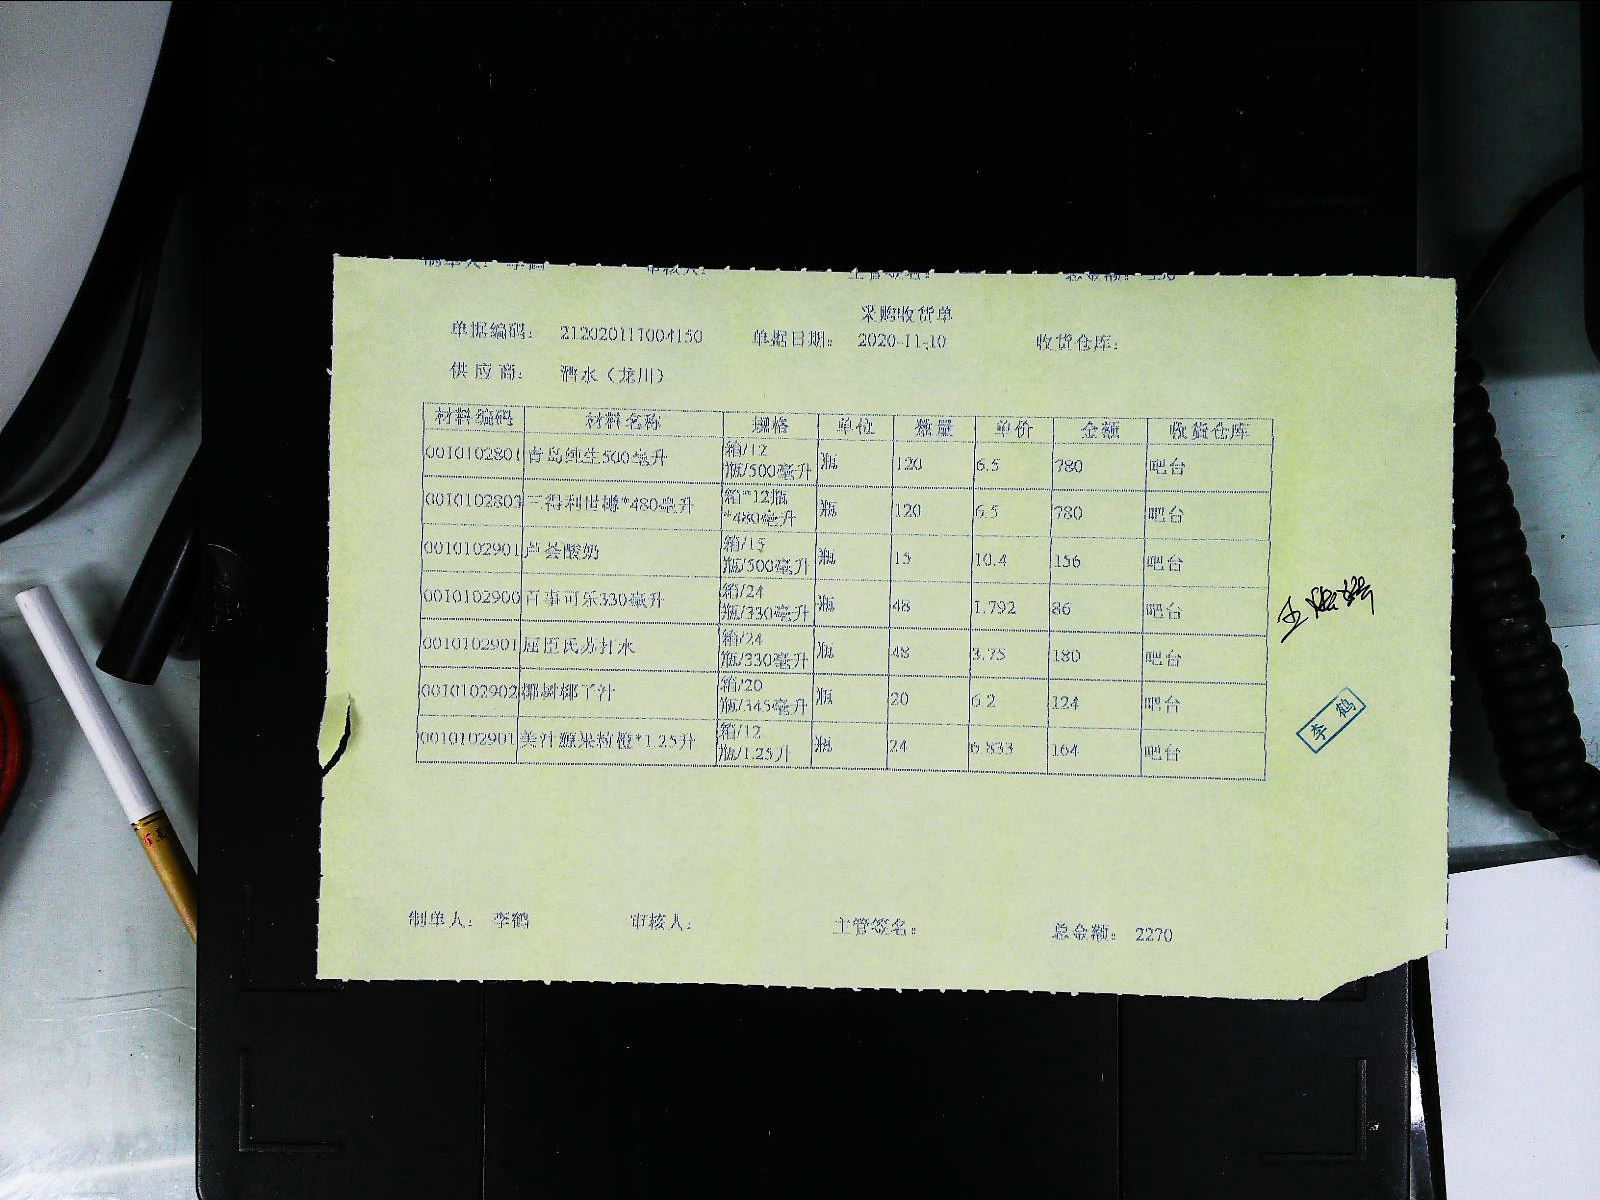 采购收货单
单据编码： 212020111004150 单据日期： 2020-11-10 收货仓库：
供应商： 酒水（龙川）
材料编码 材料名称 规格 单位 数量 单价 金额 收货仓库
0010102801 青岛纯生500毫升 箱/12瓶/500毫升 瓶 120 6.5 780 吧台
0010102803 三得利世樽*480毫升 箱*12瓶*480毫升 瓶 120 6.5 780 吧台
0010102901 芦荟酸奶 箱/15瓶/500毫升 瓶 15 10.4 156 吧台
0010102900 百事可乐330毫升 箱/24瓶/330毫升 瓶 48 1.792 86 吧台
0010102901 屈臣氏苏打水 箱/24瓶/330毫升 瓶 48 3.75 180 吧台
0010102902 椰树椰子汁 箱/20瓶/345毫升 瓶 20 6.2 124 吧台
0010102901 美汁源果粒橙*1.25升 箱/12瓶/1.25升 瓶 24 6.833 164 吧台
李鹤
制单人： 李鹤 审核人： 主管签名： 总金额： 2270